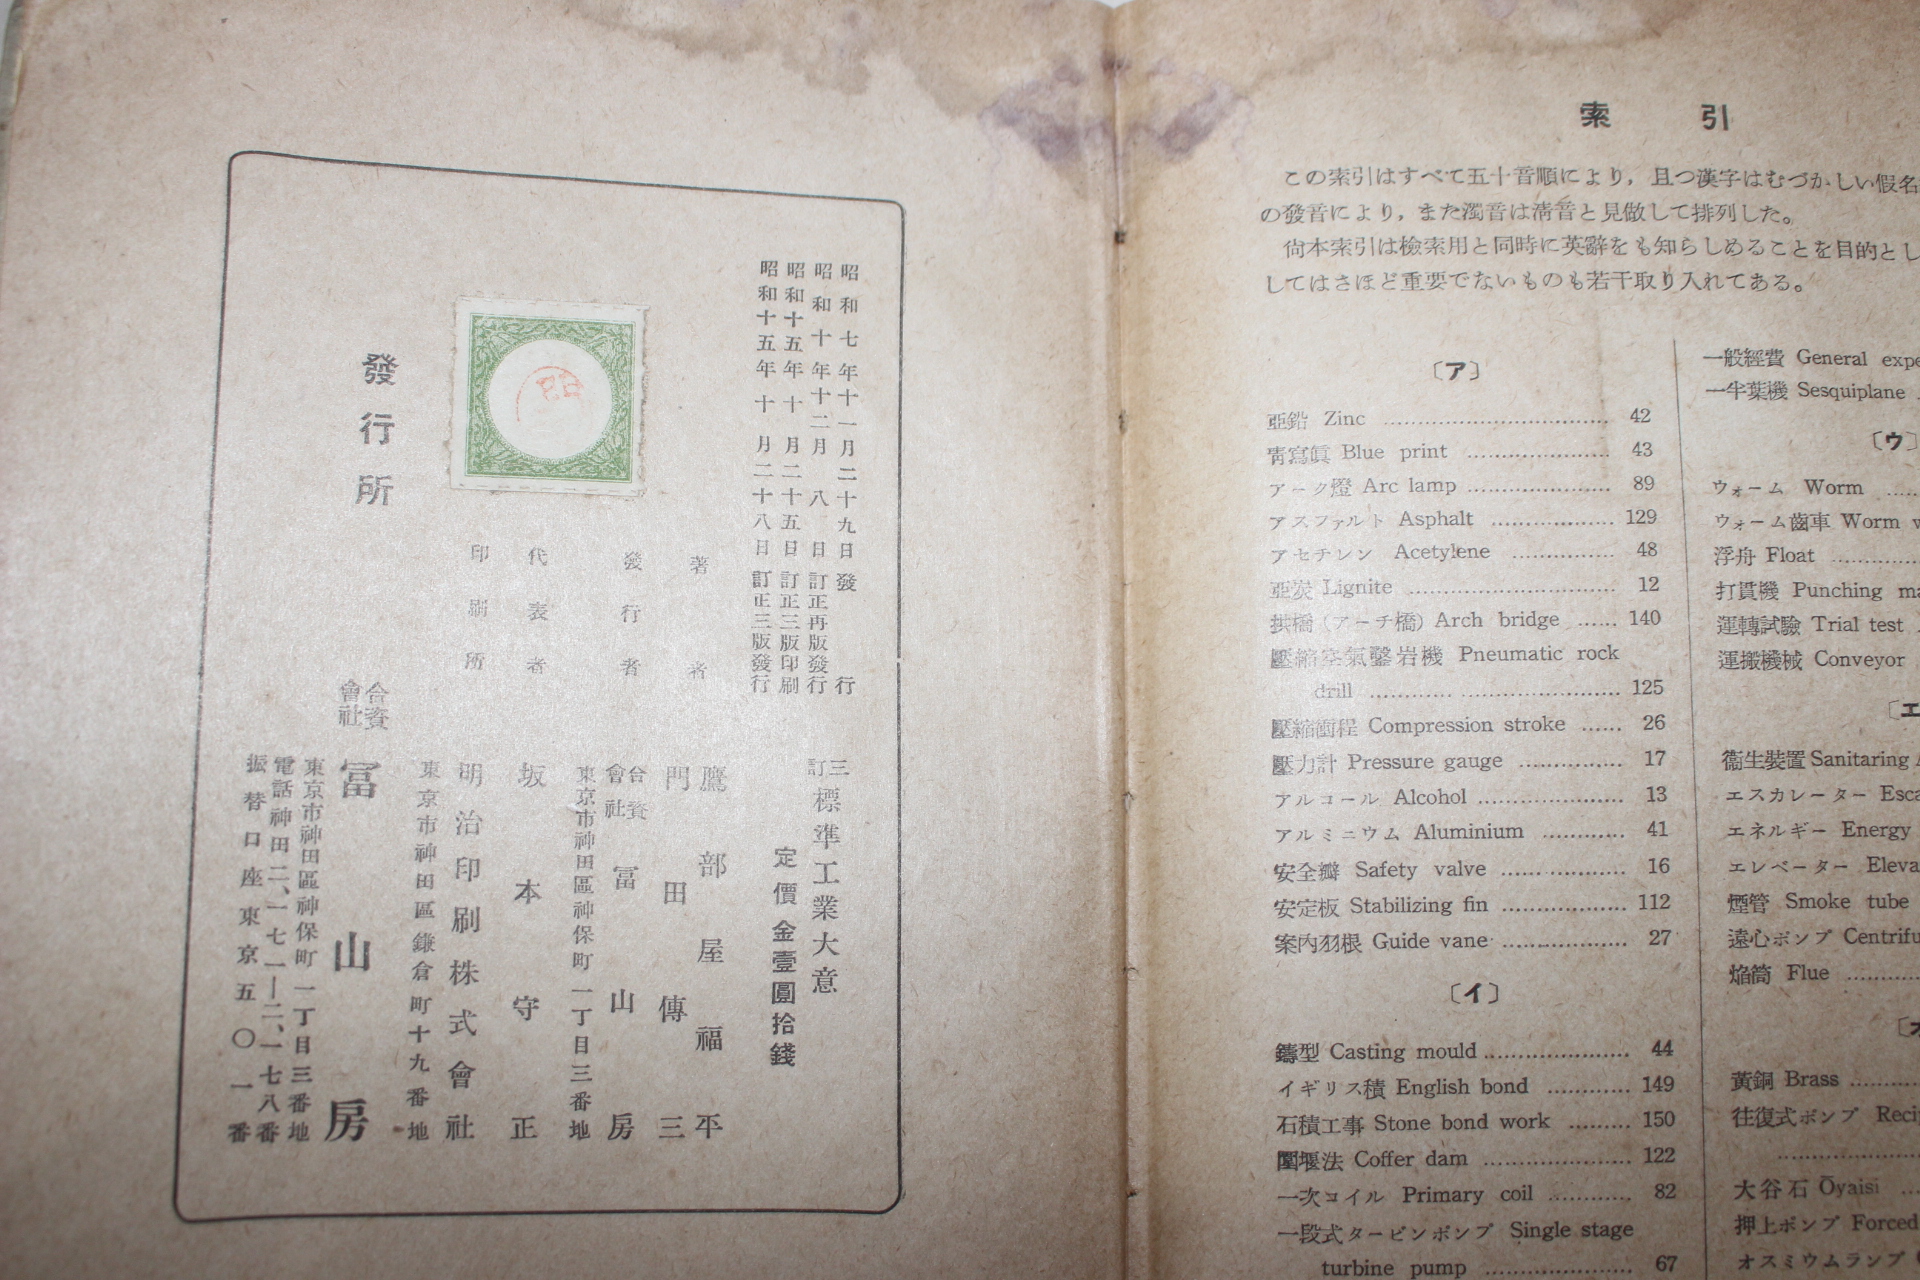 昭和七年十一月二十九日發行
昭和十年十二月八日訂正再版發行
昭和十五年十月二十五日訂正三版印刷
昭和十五年十月二十八日訂正三版發行
三訂 標準工業大意
定價金壹圓拾錢
著者 鷹部屋福平
門田傳三
發行者 合資會社 冨山房
東京市神田區神保町一丁目三番地
代表者 坂本守正
印刷所 明治印刷株式會社
東京市神田區鎌倉町十九番地
發行所 合資會社 冨山房
東京市神田區神保町一丁目三番地
電話神田二、一七一―二、一七八番
振替口座東京五〇一番
索引
この索引はすべて五十音順により，且つ漢字はむづかしい假名
の發音により，また濁音は淸音と見做して排列した。
尙本索引は檢索用と同時に英辭をも知らしめることを目的とし
してはさほど重要でないものも若干取り入れてある。
〔ア〕
亜鉛 Zinc 42
靑寫眞 Blue print 43
アーク燈 Arc lamp 89
アスファルト Asphalt 129
アセチレン Acetylene 48
亜炭 Lignite 12
拱橋（アーチ橋）Arch bridge 140
壓縮空氣鑿岩機 Pneumatic rock
drill 125
壓縮衝程 Compression stroke 26
壓力計 Pressure gauge 17
アルコール Alcohol 13
アルミニウム Aluminium 41
安全瓣 Safety valve 16
安定板 Stabilizing fin 112
案内羽根 Guide vane 27
〔イ〕
鑄型 Casting mould 44
イギリス積 English bond 149
石積工事 Stone bond work 150
圍堰法 Coffer dam 122
一次コイル Primary coil 82
一段式タービンポンプ Single stage
turbine pump 67
一般經費 General expe
一半葉機 Sesquiplane
〔ウ〕
ウォーム Worm
ウォーム齒車 Worm w
浮舟 Float
打貫機 Punching ma
運轉試驗 Trial test
運搬機械 Conveyor
〔エ
衞生裝置 Sanitaring A
エスカレーター Esca
エネルギー Energy
エレベーター Eleva
煙管 Smoke tube
遠心ポンプ Centrifu
焔筒 Flue
〔オ
黃銅 Brass
往復式ポンプ Reci
大谷石 Ōyaisi
押上ポンプ Forced
オスミウムランプ